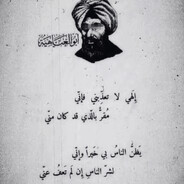 أبو العتاهية
إلهي لا تعذبني فإني
مقرٌ بالذي قد كان مني
يظنُّ الناسُ بي خيراً وإني
لشرّ الناسِ إن لم تعفُ عني